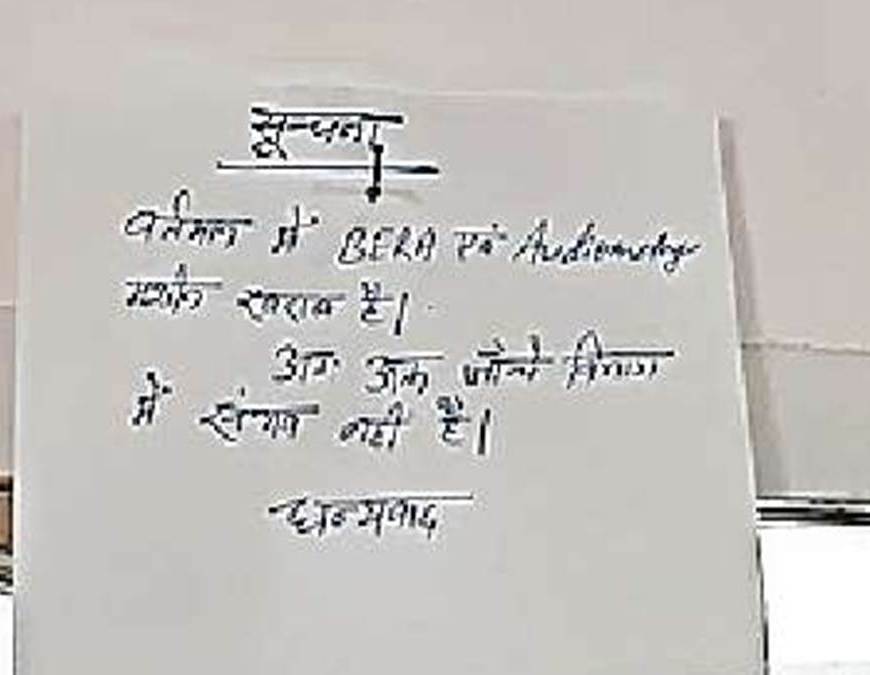 सूचना
वर्तमान में BERA एवं Audiometry
मशीन खराब है।
अतः उक्त जाँचे विभाग
में संभव नहीं है।
धन्यवाद